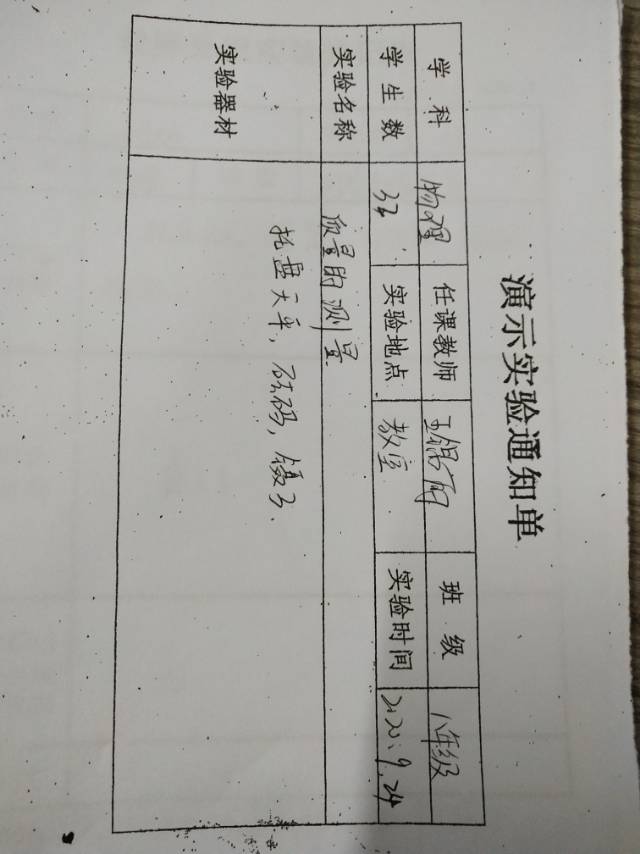 演示实验通知单
学科 物理 任课教师 班级 八年级
学生数 32 实验地点 教室 实验时间 2020.9.24
实验名称 质量的测量
实验器材 托盘天平，砝码，镊子.